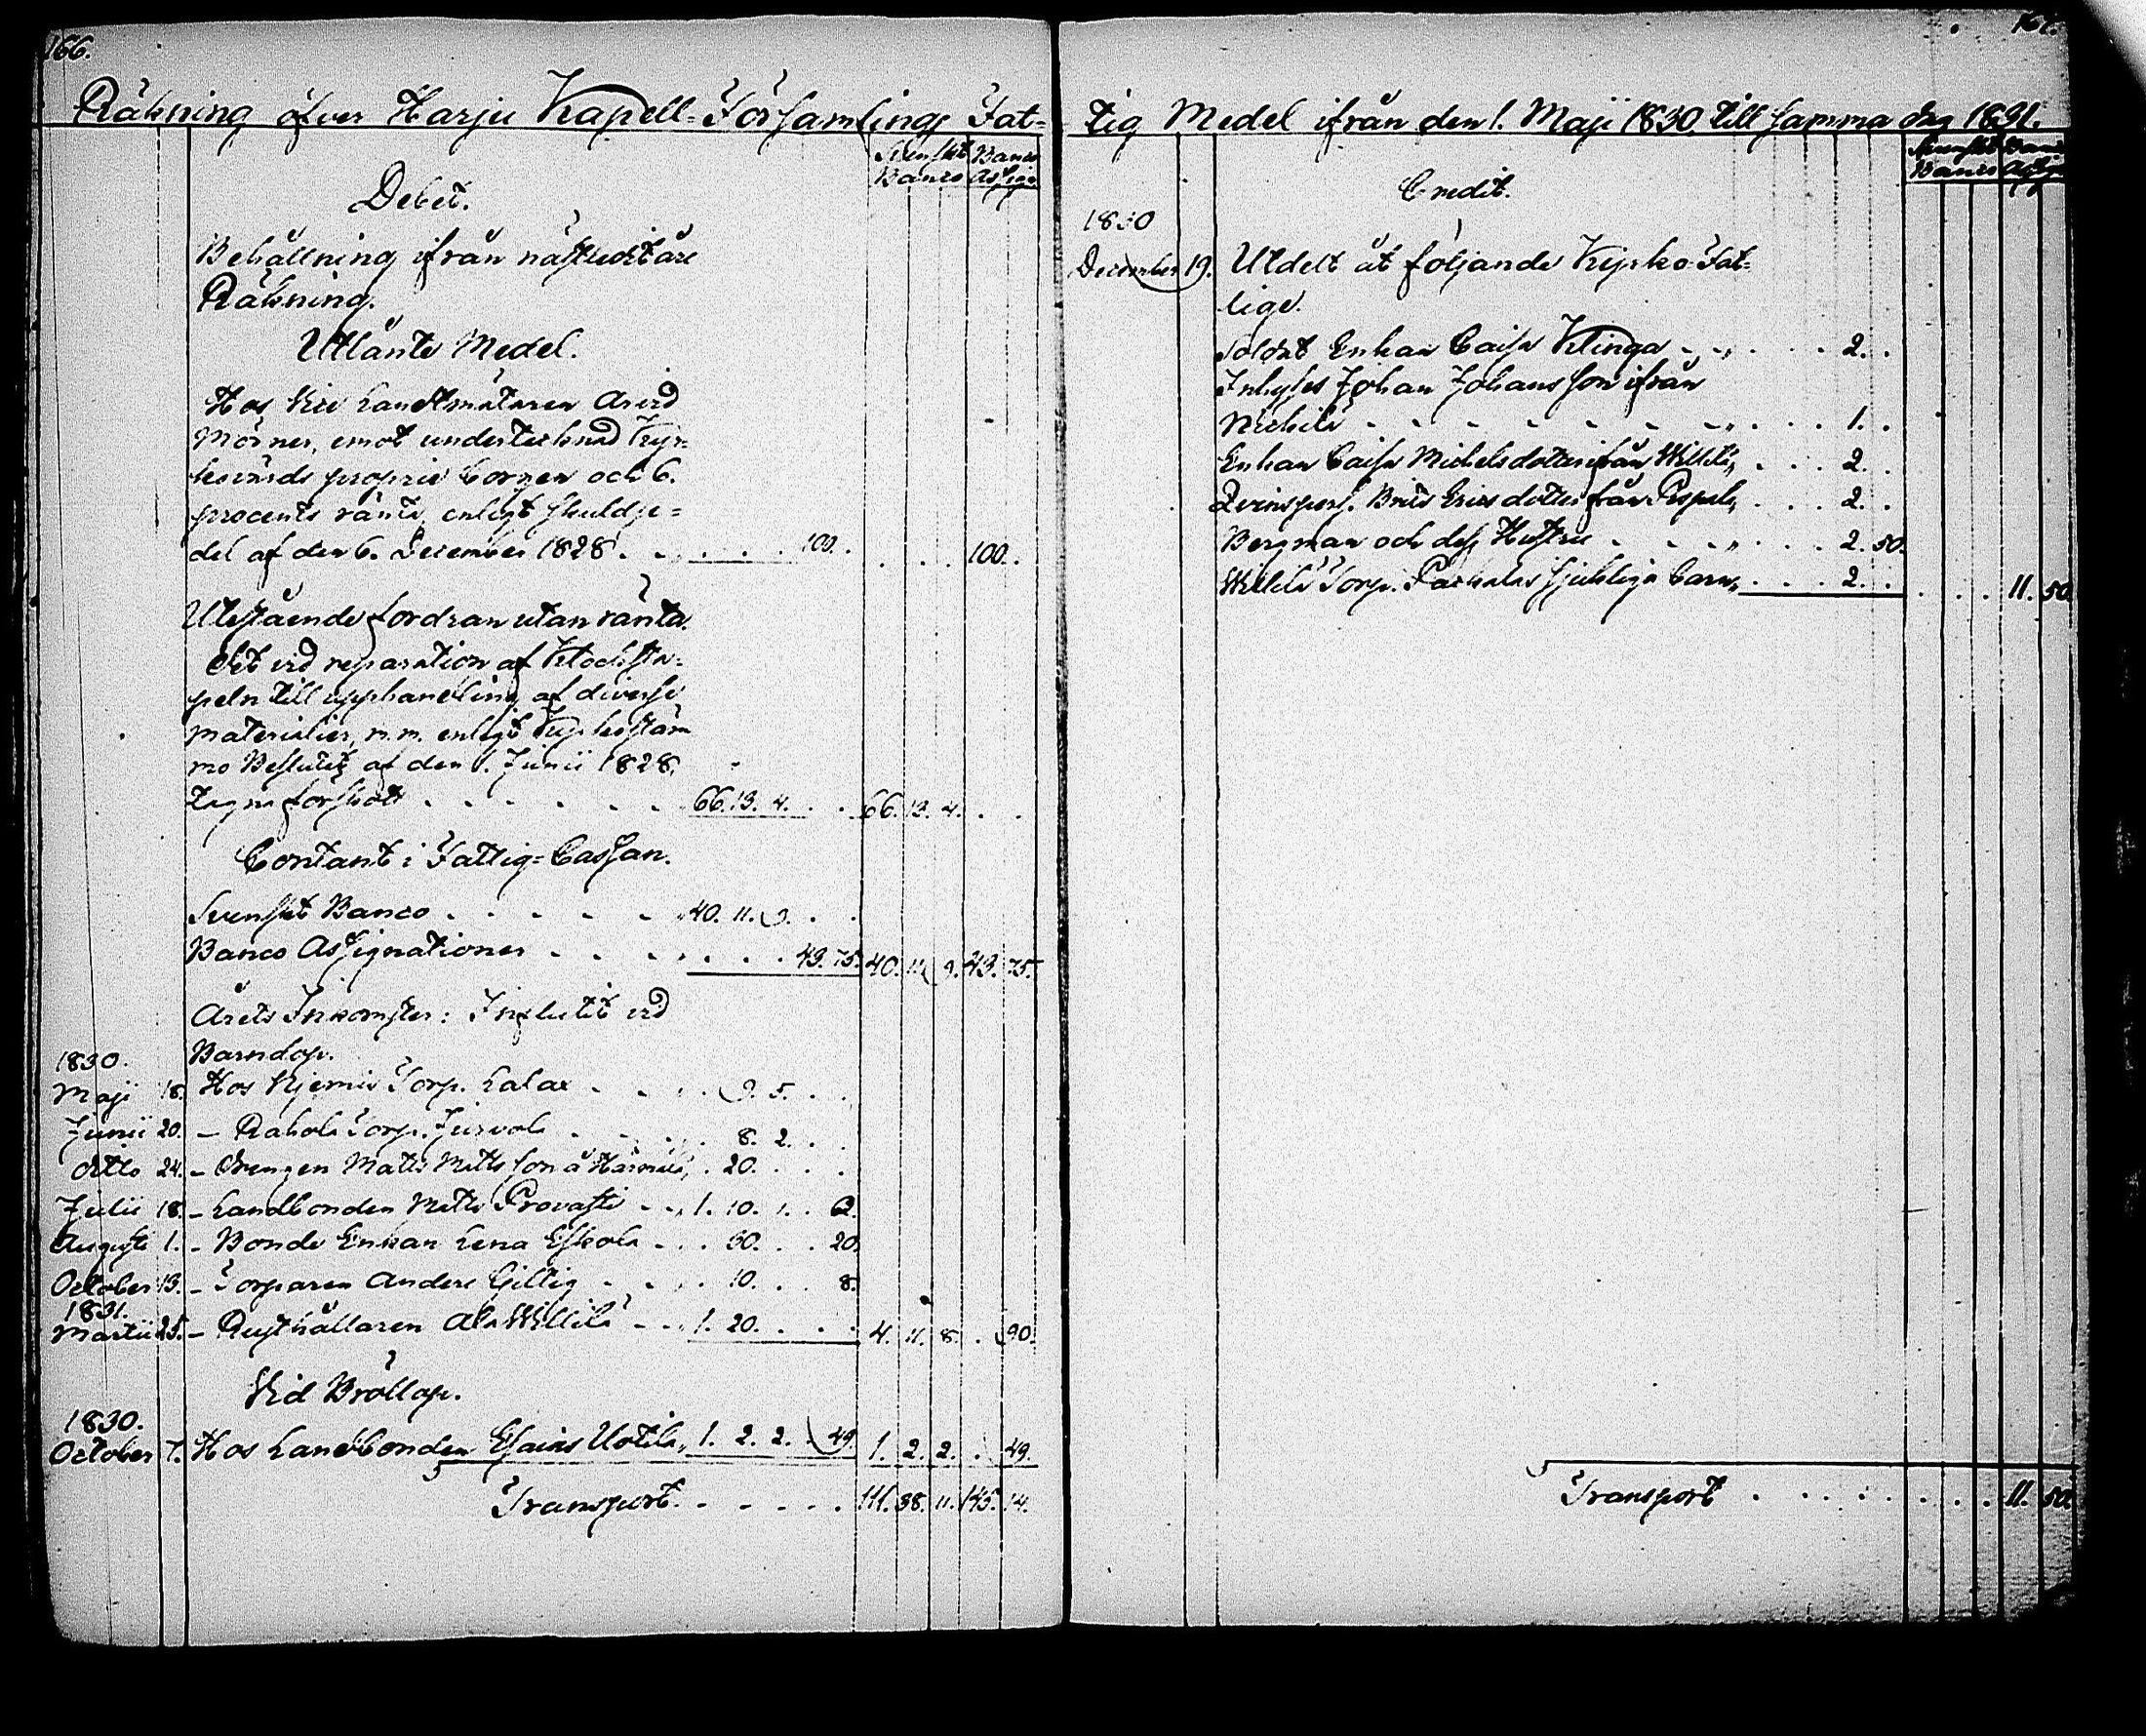 166.
Räkning öfver Harju Kapell-Församlings Fat-
Svenskt Banco
Banco Assign.
Debet.
Behållning ifrån nästledit års
Räkning.
Utlånte Medel.
Hos Vice Landtmätaren Arvid
Mörner, emot undertecknad Kyr-
kovärds proprie Borgen och 6.
procents ränta, enligt skuldse-
del af den 6. December 1828. 100. 100.
Utestående fordran utan ränta.
Det vid reparation af Klocksta-
peln till upphandling af diverse
materialier, m.m. enligt Kyrkostäm
mo Beslutet af den 1. Junii 1828,
tagne förskott 66. 13. 4. 66. 13. 4.
Contant i Fattig-Cassan.
Svenskt Banco 40. 11. 9.
Banco Assignationer 43. 75. 40. 11. 9. 43. 75.
Årets Inkomster: Influtit vid
1830. Barndop.
Maji 18. Hos Kjemis Torp. Lalax 9. 5.
Junii 20. - Rahola Torp. 8. 2.
ditto 24. - Drengen Matts Mattsson å 20.
Julii 18. - Landbonden Matts Provasti 1. 10. 1. 62.
Augusti 1. - Bonde Enkan Lena Eskola 30. 20.
October 13. - Torparen Anders Gillig 10. 8.
1831.
Martii 25. - Rusthållaren Ala Willilä 1. 20. 4. 11. 8. 90.
Vid Bröllop.
1830.
October 7. Hos Landbonden Esaias Uotila 1. 2. 2. 49. 1. 2. 2. 49.
Transport. 111. 38. 11. 145. 14.
167.
tig Medel ifrån den 1. Maji 1830 till samma dag 1831.
Svenskt Banco
Banco Assign.
Credit.
1830
December 19. Utdelt åt följande Kyrko-Fat-
tige.
Soldat Enkan Caisa Klinga 2.
Inhyses Johan Johansson ifrån
1.
Enkan Caisa Michelsdotter ifrån Willilä 2.
Qvinspers. Brita Ericsdotter från 2.
Bergman och dess Hustru 2. 50.
Willilä Torp. sjukliga barn 2. 11. 50.
Transport 11. 50.